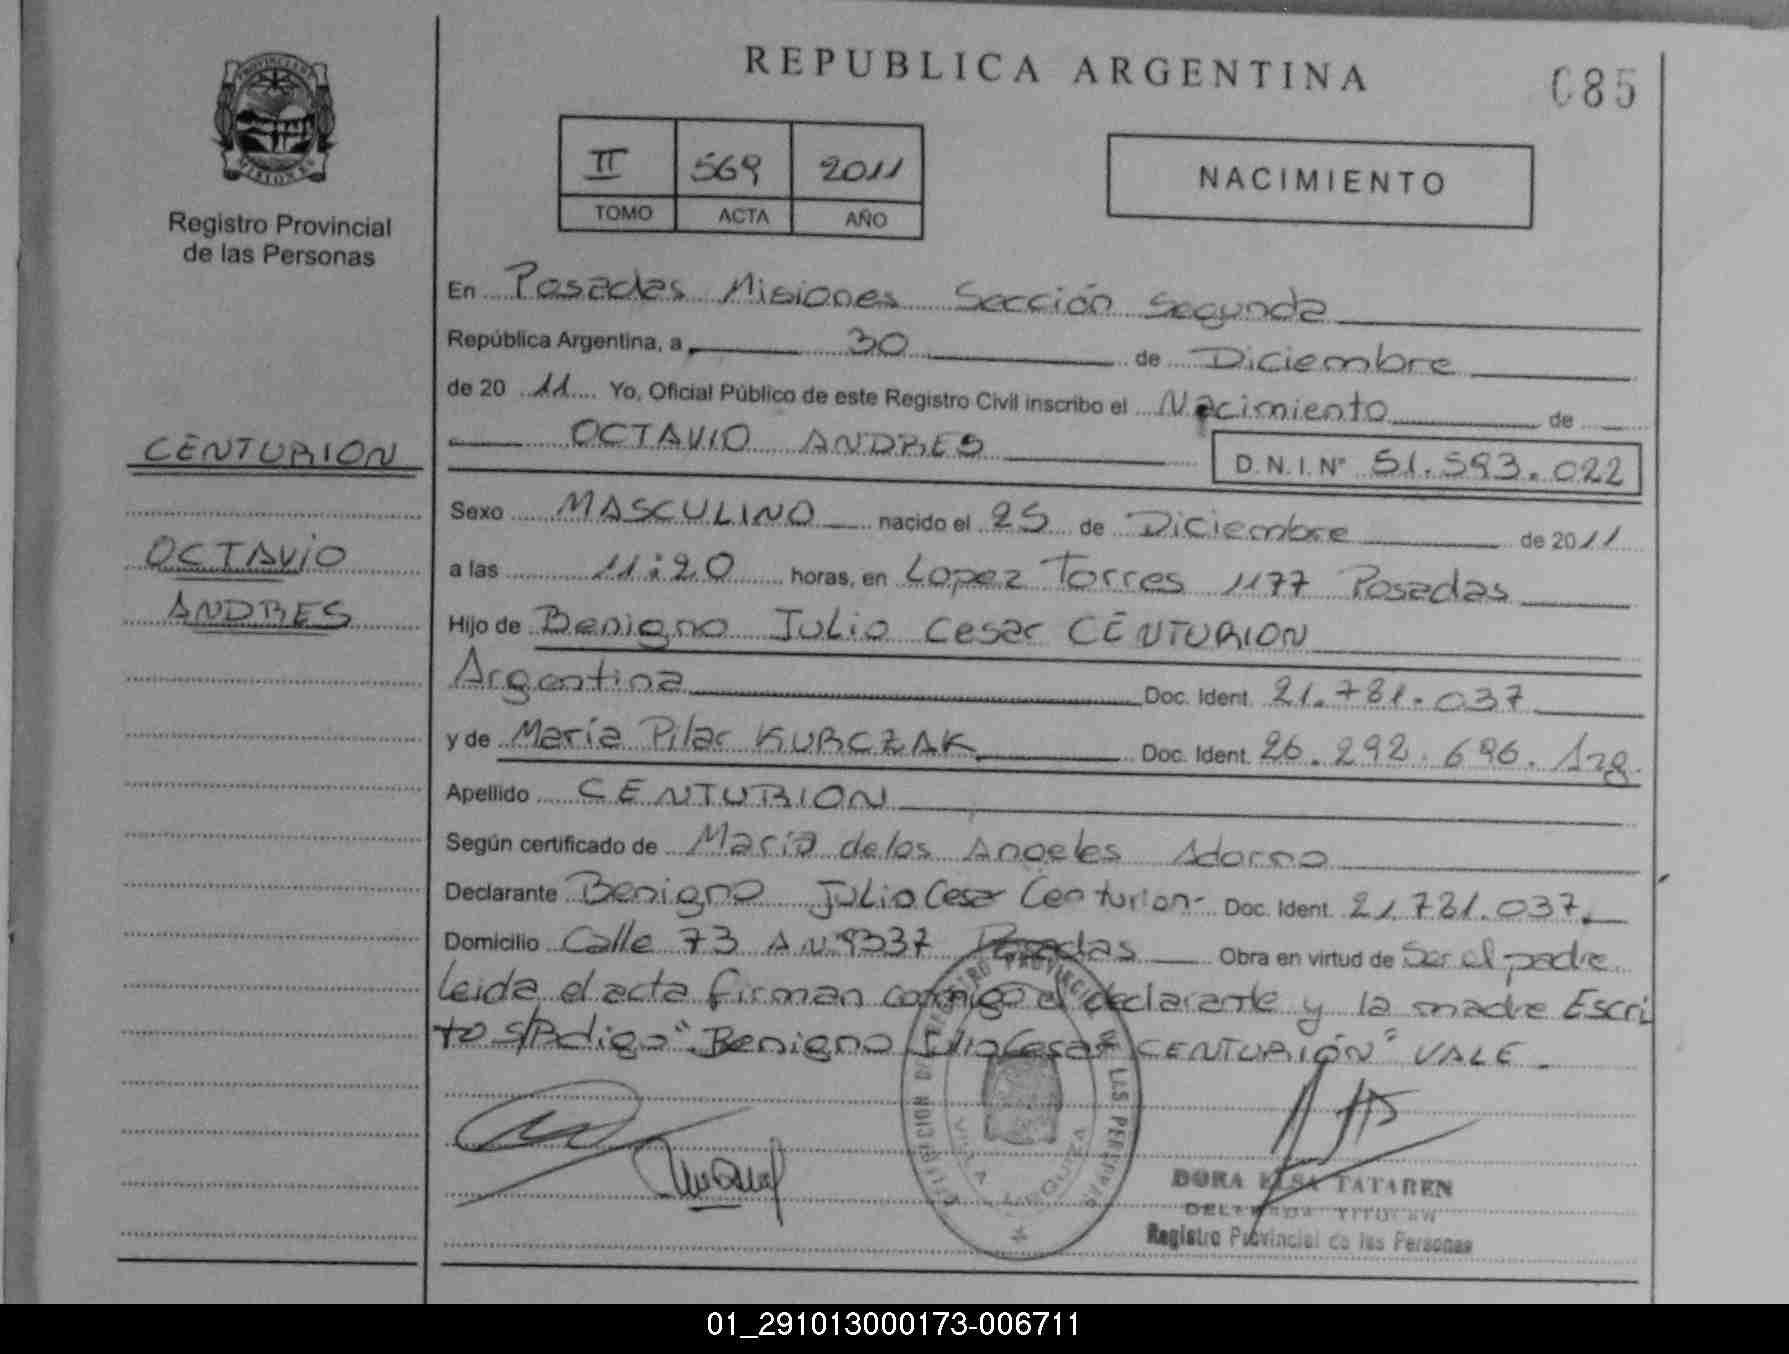 REPUBLICA ARGENTINA
085
PROVINCIA DE
MISIONES
Registro Provincial
de las Personas
II 569 2011
TOMO ACTA AÑO
NACIMIENTO
En Posadas Misiones Sección Segunda
República Argentina, a 30 de Diciembre
de 20 11 Yo, Oficial Público de este Registro Civil inscribo el Nacimiento de
OCTAVIO ANDRES D.N.I. Nº 51.593.022
CENTURION
OCTAVIO
ANDRES
Sexo MASCULINO nacido el 25 de Diciembre de 2011
a las 11:20 horas, en Lopez Torres 1177 Posadas
Hijo de Benigno Julio Cesar CENTURION
Argentina Doc. Ident. 21.781.037
y de María Pilar KURCZAK Doc. Ident. 26.292.696. Arg.
Apellido CENTURION
Según certificado de María delos Angeles Adorno
Declarante Benigno Julio Cesar Centurion- Doc. Ident. 21.781.037.
Domicilio Calle 73 A Nº 9337 Posadas Obra en virtud de Ser el padre
Leida el acta firman conmigo el declarante y la madre Escri
to S/ "Benigno Julio Cesar CENTURIÓN" VALE
DORA ELSA TATAREN
DELEGADA TITULAR
Registro Provincial de las Personas
01_291013000173-006711